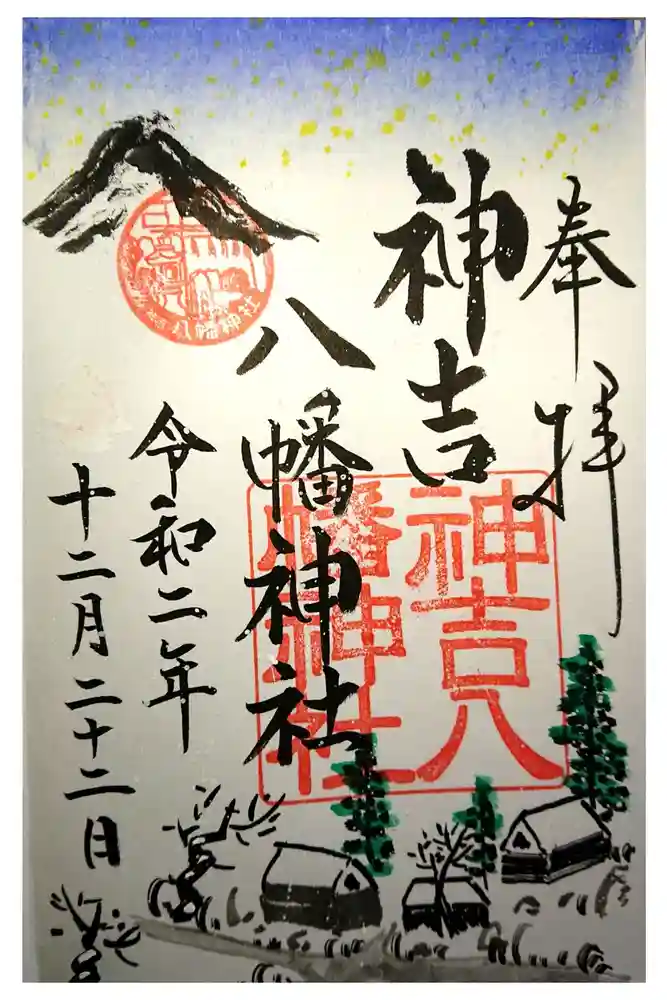 奉拝
神吉
八幡神社
令和二年
十二月二十二日
神吉八
幡神社
八幡神社